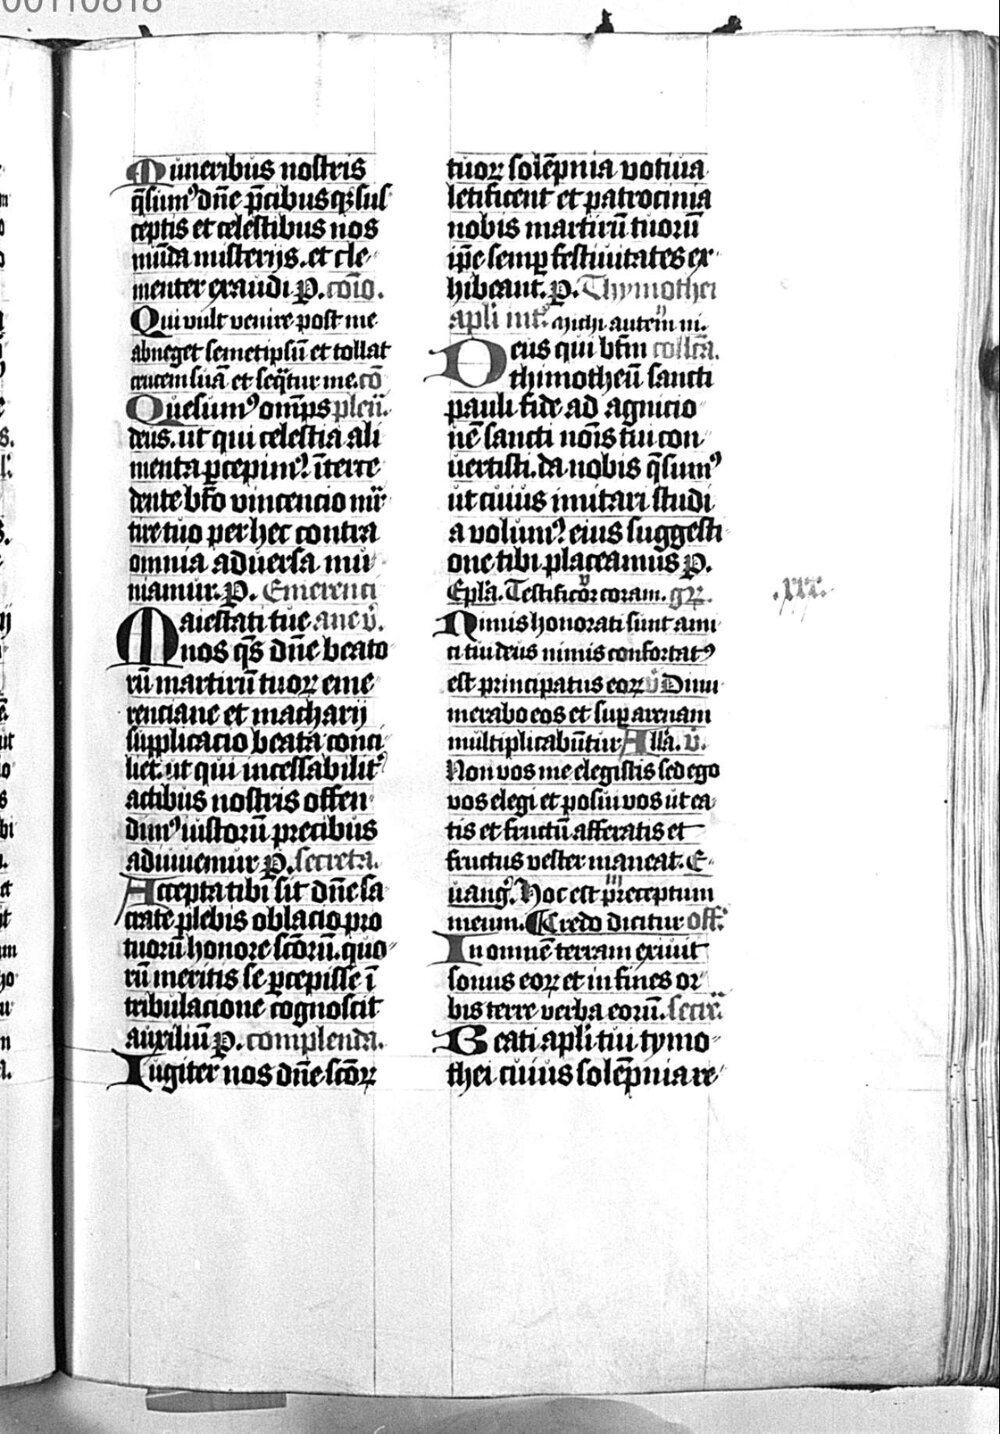 00110818
Muneribus nostris
q̄sumꝰ dn̄e p̄cibusqꝫ sus
ceptis et celestibus nos
mūda misterijs. et cle-
menter exaudi P. cōio.
Qui vult venire post me
abneget semetipsū et tollat
crucem suā et seq̄tur me. cō
Quesumꝰ om̄ps plen̄.
deus. ut qui celestia ali
menta ꝑcepimꝰ īterce
dente bt̄o vincencio mr̄
tire tuo per hec contra
omnia aduersa mu
niamur. P. Emerenci
Maiestati tue ane v̄.
nos q̄s dn̄e beato
rū martirū tuoꝝ eme
renciane et macharij
supplicacio beata conci
liet. ut qui incessabilit̓
actibus nostris offen
dimꝰ iustorū precibus
adiuuemur P. secreta.
Accepta tibi sit dn̄e sa
crate plebis oblacio pro
tuorū honore sc̄orū. quo-
rū meritis se ꝑcepisse ī
tribulacione cognoscit
auxiliū P. complenda.
Iugiter nos dn̄e sc̄oꝝ
tuoꝝ solēpnia votiua
letificent et patrocinia
nobis martirū tuorū
ip̄e semꝑ festiuitates ex-
hibeant. P. Thymothei
apl̄i int̄. Michi autem ni.
Deus qui bt̄m collc̄a.
thimotheū sancti
pauli fide ad agnicio
nē sancti nōis tui con
uertisti. da nobis q̄sumꝰ
ut cuius imitari studi
a volumꝰ eius suggesti
one tibi placeamus P.
Epl̄a. Testificor coram. gꝝ.
Nimis honorati sunt ami
ci tui deus nimis confortatꝰ
est principatus eoꝝ v̄ Dinu
merabo eos et suꝑ arenam
multiplicabūtur All̄a. v̄.
Non vos me elegistis sed ego
vos elegi et posui vos ut ea
tis et fructū afferatis et
fructus vester maneat. E-
uang̓. Hoc est preceptum
meum. Credo dicitur off̄.
In omnē terram exiuit
sonus eoꝝ et in fines or
bis terre verba eorū. secr̄.
Beati apl̄i tui tymo-
thei cuius solēpnia re-